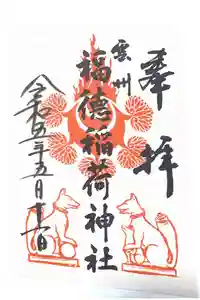 奉拝
雲州
福徳稲荷神社
令和五年五月十一日